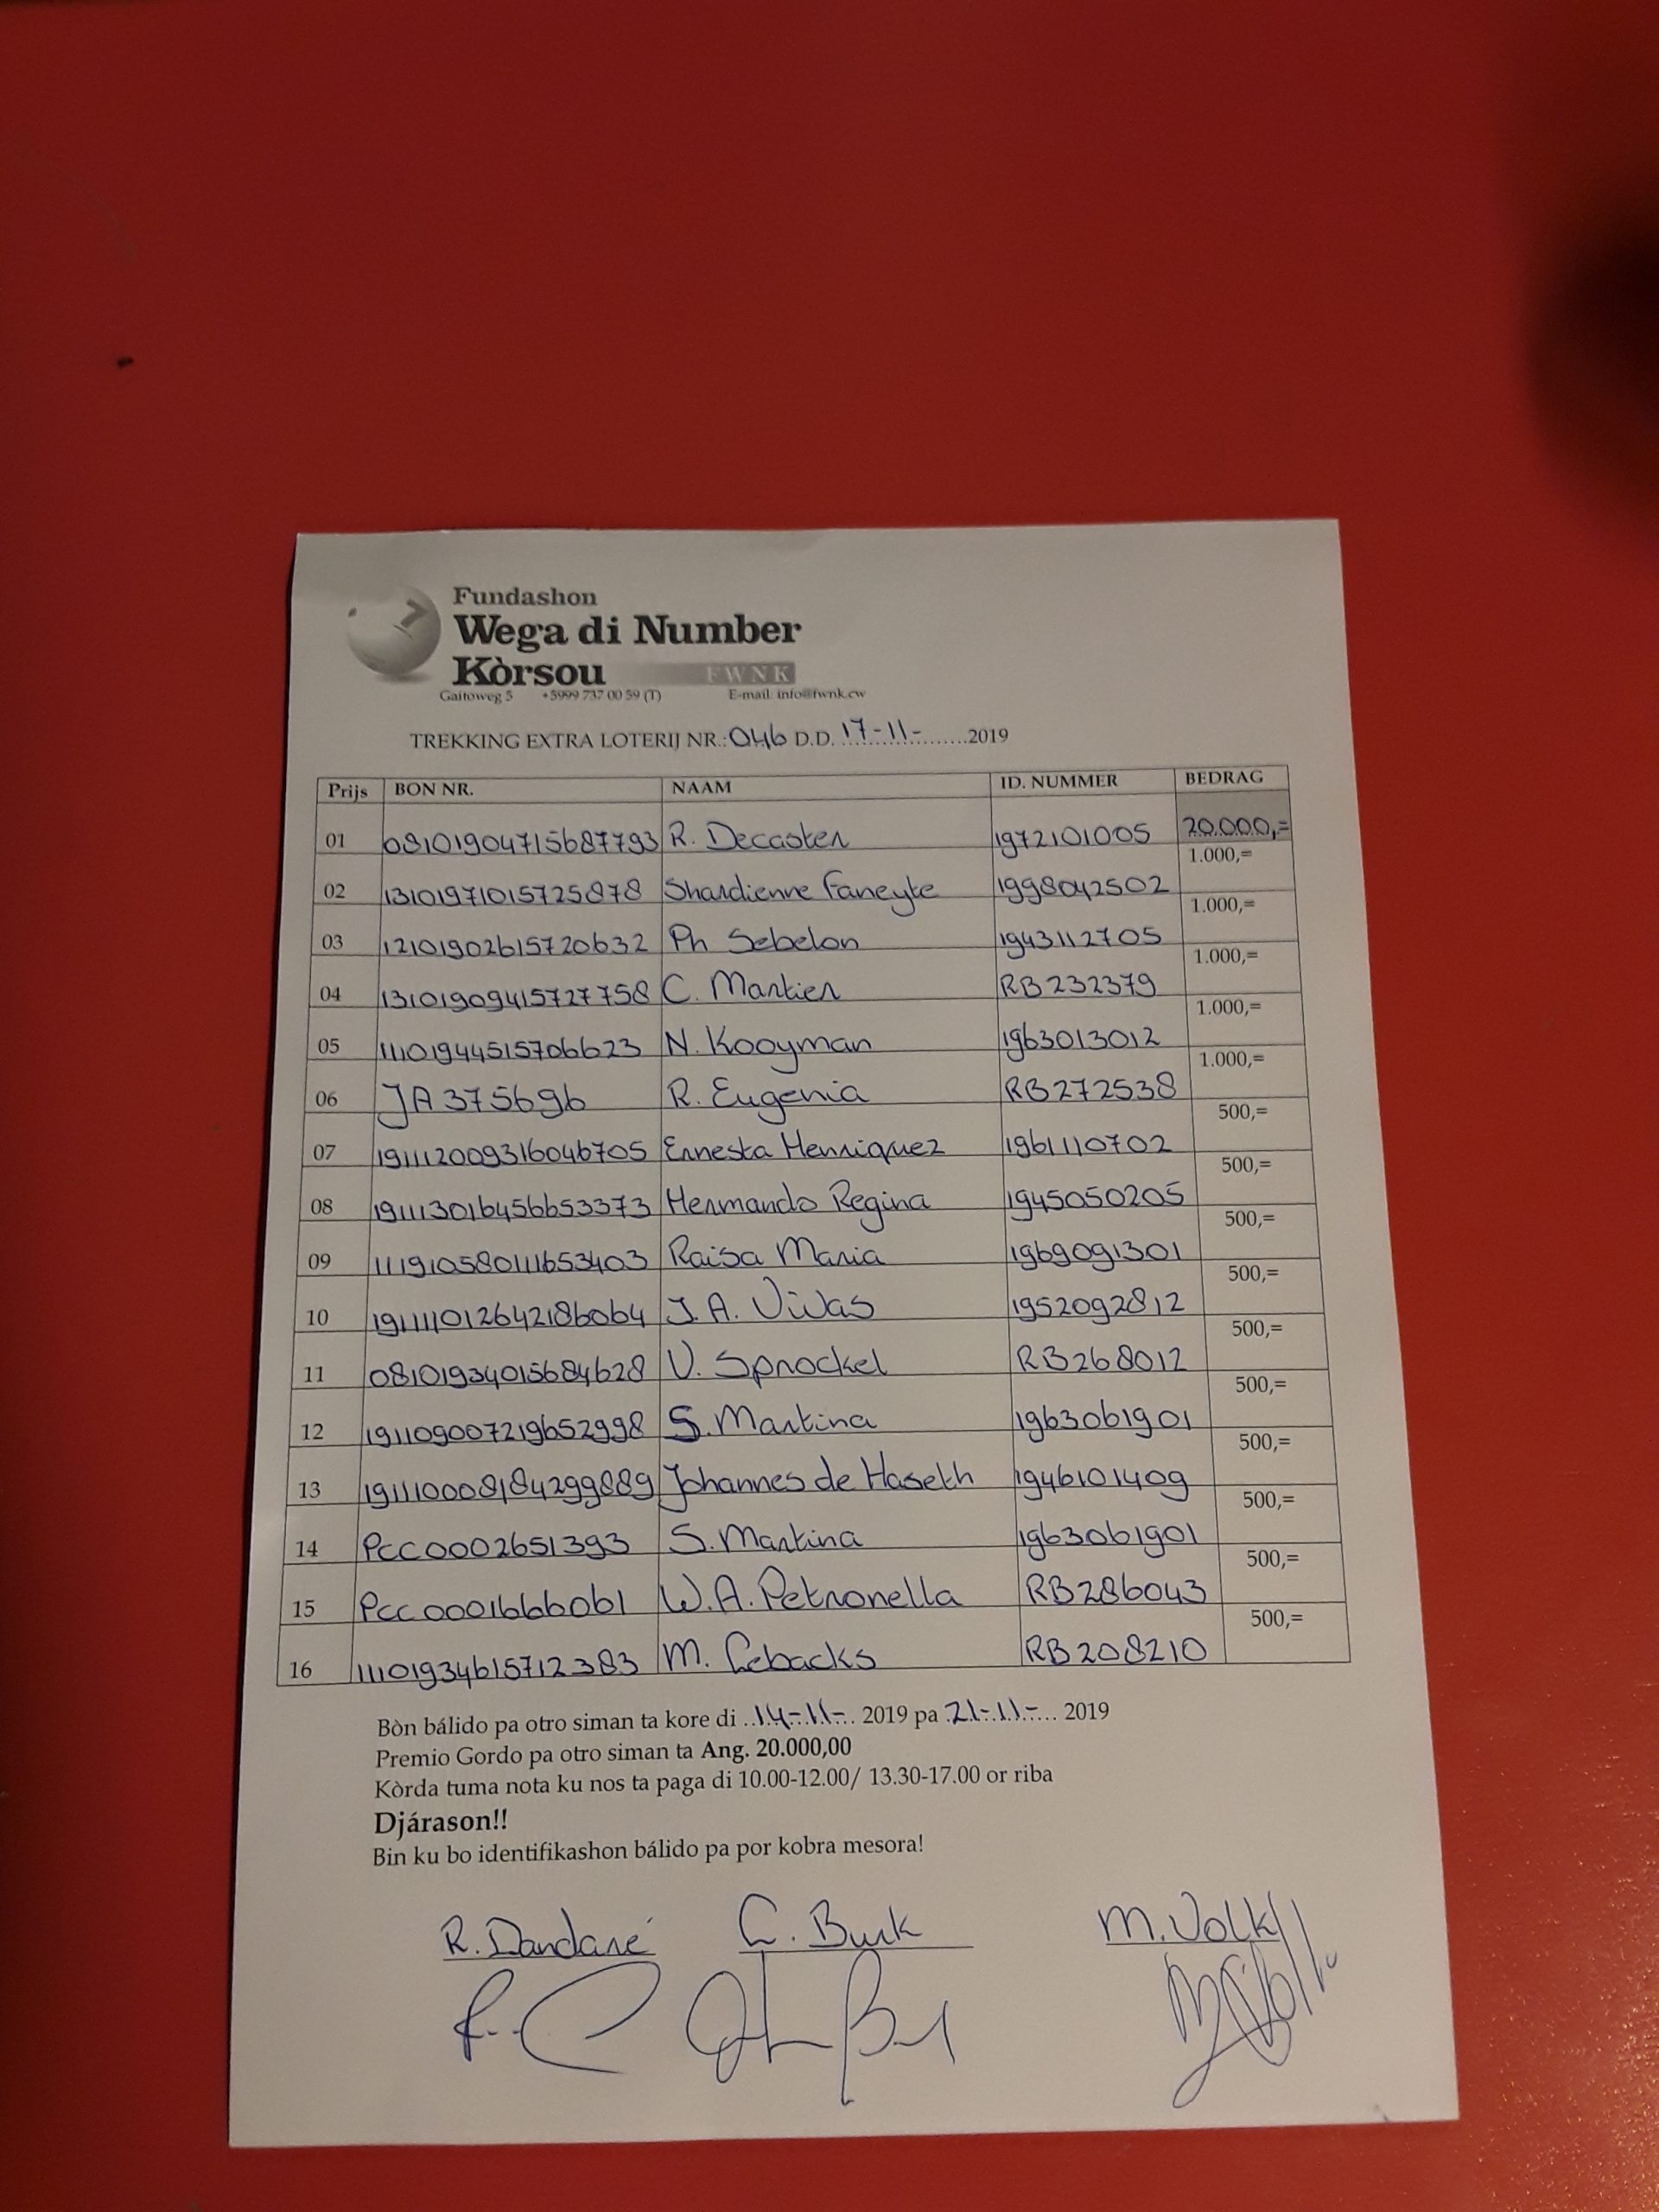 Fundashon
Wega di Number
Kòrsou FWNK
Gaitoweg 5 +5999 737 00 59 (T) E-mail: info@fwnk.cw
TREKKING EXTRA LOTERIJ NR.: 046 D.D. 17-11-.........2019
Prijs BON NR. NAAM ID. NUMMER BEDRAG
01 08101904715687793 R. Decaster 1972101005 20.000,=
02 13101971015725878 Shardienne Faneyte 1998042502 1.000,=
03 12101902615720632 Ph Sebelon 1943112705 1.000,=
04 13101909415727758 C. Martier RB232379 1.000,=
05 11101944515706623 N. Kooyman 1963013012 1.000,=
06 JA375696 R. Eugenia RB272538 1.000,=
07 191112009316046705 Ernesta Henriquez 1961110702 500,=
08 191113016456653373 Hermando Regina 1945050205 500,=
09 111910580111653403 Raisa Maria 1969091301 500,=
10 191111012642186064 J.A. Vivas 1952092812 500,=
11 08101934015684628 V. Sprockel RB268012 500,=
12 191109007219652998 S. Martina 1963061901 500,=
13 191110008184299889 Johannes de Haseth 1946101409 500,=
14 PCC0002651393 S. Martina 1963061901 500,=
15 PCC0001666061 W.A. Petronella RB286043 500,=
16 11101934615712383 M. Cebacks RB208210 500,=
Bòn bálido pa otro siman ta kore di ..14-11-... 2019 pa .21-11-.... 2019
Premio Gordo pa otro siman ta Ang. 20.000,00
Kòrda tuma nota ku nos ta paga di 10.00-12.00/ 13.30-17.00 or riba
Djárason!!
Bin ku bo identifikashon bálido pa por kobra mesora!
R. Dandaré C. Burk M. Volk